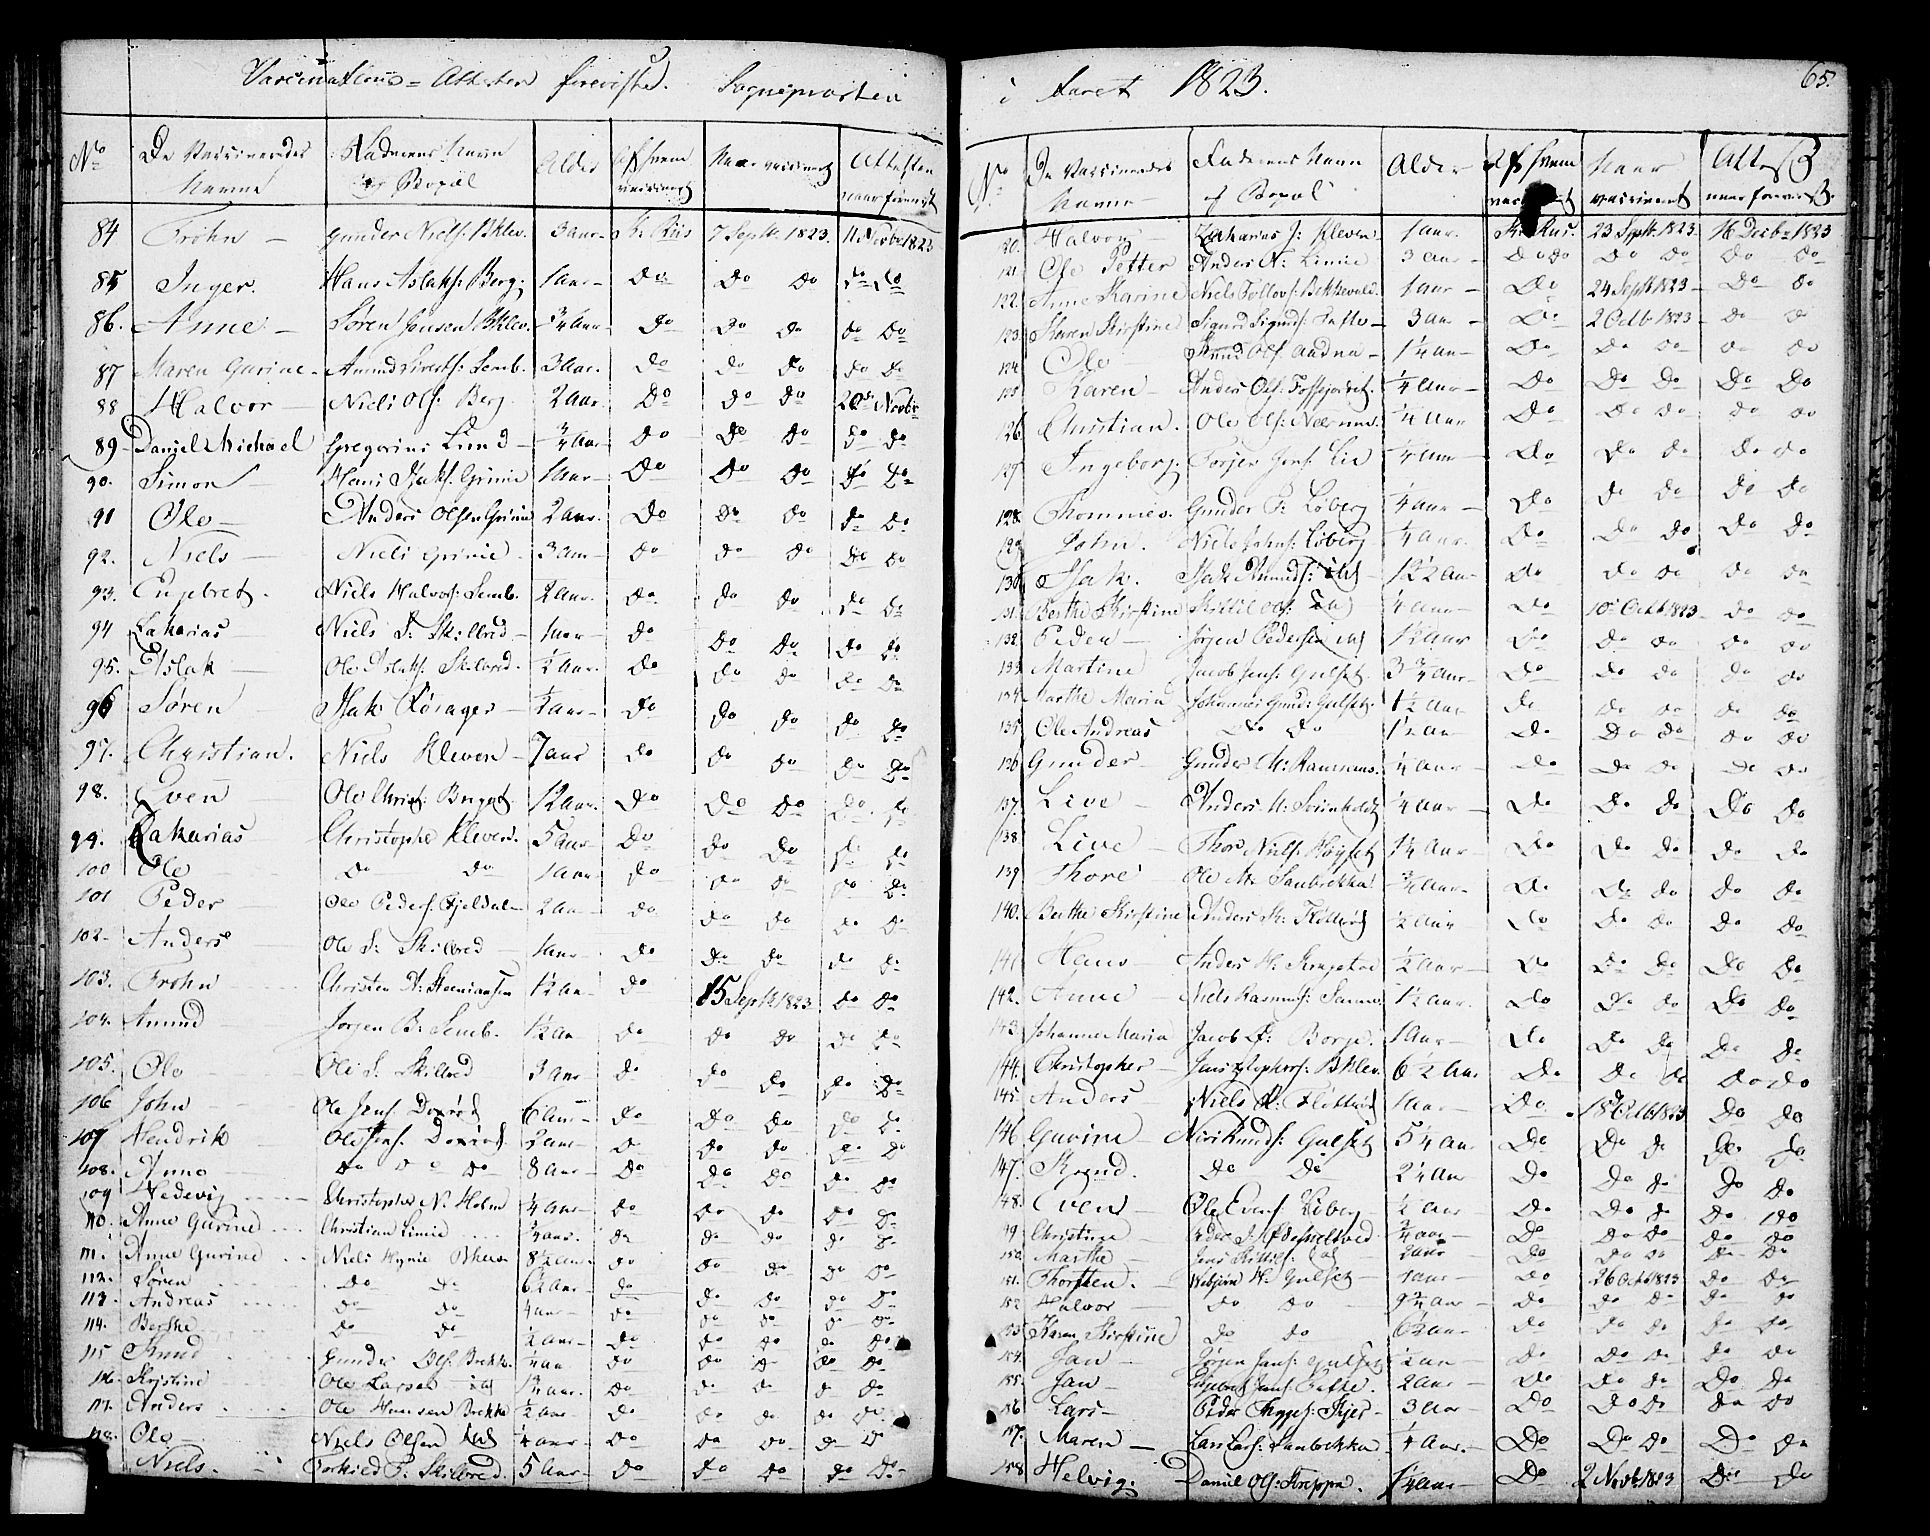 Vaccinations-Attester foreviste Sognepræsten
No De Vaccineredes Navne Faderens Navn og Bopæl Alder Af hvem vaccineret Naar vaccineret Attesten naar forevist
84 Frøhn Gunder Niels: Bklev. 3 aar K. Riis 7 Septb. 1823. 11 Novbr 1823
85 Inger. Hans Aslaks: Berg. 1 aar Do Do Do Do Do
86. Anne Søren Jensen Bklev. 3/4 Aar Do Do Do Do Do
87 Maren Gurine Amund Siverts: Semb. 3 Aar. Do Do Do Do Do
88 Halvor Niels Ols: Berg 2 aar. Do Do Do 20de Novbr
89 Daniel Michael Gregorius Lund 3/4 Aar Do Do Do Do Do
90. Simon Hans Isaks: Grinie 1 aar Do Do Do Do Do
91 Ole Anders Olsen Grinie 2 aar. Do Do Do Do Do
92. Niels Niels Grinie 3 aar Do Do Do Do Do
93. Engebret. Niels Halvors: Semb. 2 aar. Do Do Do Do Do
94 Zakarias Niels S: Skilbred 1 aar Do Do Do Do Do
95. Aslak Ole Aslaks: Skilbred. 1/2 aar. Do Do Do Do Do
96 Søren Isak Røsager 1/2 aar Do Do Do Do Do
97. Christian. Niels Kleven 7 aar Do Do Do Do Do
98. Even Ole Christ: 1 1/2 aar. Do Do Do Do Do
99. Zakarias Christopher Kleven. 5 aar Do Do Do Do Do
100 Ole Do Do 1 aar Do Do Do Do Do
101 Peder Ole Peders: Fjeldal 2 aar Do Do Do Do Do
102. Anders Ole S: Skilbred 1 aar Do Do Do Do Do
103. Frøhn Christen A: Hermansen 1 1/2 aar Do 15 Septb 1823 Do Do
104. Amund Jørgen B: Semb. 1 1/2 aar Do Do Do Do Do
105. Ole Ole S: Skilbred 3 aar Do Do Do Do Do
106 John Ole Jens: 6 aar Do Do Do Do Do
107 Hendrik Ole Jens: 2 aar Do Do Do Do Do
108. Anne Do Do Do 8 aar Do Do Do Do Do
109 Hedevig Christopher N. Holm 1/4 aar Do Do Do Do Do
110. Anne Gurine Christian Limie 3/4 aar. Do Do Do Do Do
111. Anne Gurine Niels Bklev 8 1/2 aar Do Do Do Do Do
112. Søren Do Do 6 1/2 aar Do Do Do Do Do
113. Andreas Do Do 4 aar Do Do Do Do Do
114. Berthe Do Do 1/2 aar Do Do Do Do Do
115 Knud Gunder Ols: Brekke 1/4 aar Do Do Do Do Do
116. Kristine Ole Larsen 1 3/4 aar. Do Do Do Do Do
117. Anders Ole Hansen Brekke 1/2 aar Do Do Do Do Do
118. Ole Niels Olsen 1/4 aar Do Do Do Do Do
Niels. Torkied P. Skilbred. 5 Aar Do Do Do Do Do
i Aaret 1823. 65.
No De Vaccineredes Navne Faderens Navn og Bopæl Alder Af hvem vaccineret Naar vaccineret Attest naar forevist.
120. Halvor Zakarias J: Kleven 1 aar. K. Riis. 23 Septb. 1823 16 Decbr 1823
121. Ole Petter Anders N: Limie 3 aar Do Do Do Do Do Do
122. Anne Karine Niels Tollovs: Bekkevold. 1 aar Do 24 Septb 1823 Do Do
123. Karen Kirstine Sigurd Sigurds: Tufte 3 aar Do 2 Octb 1823 Do Do
124. Ole Knud Ols: Aadna 1 1/4 aar Do Do Do Do Do
125. Karen Anders Ols: Fossjordet. 1/4 aar Do Do Do Do Do
126. Christian. Ole Ols: 1/4 aar Do Do Do Do Do
127 Ingeborg. Torjer Jens: Lie 1/4 aar Do Do Do Do Do
128. Thommes. Gunder P: Løberg 1/4 aar Do Do Do Do Do
129 John. Niels Johns: Løberg 1/4 aar. Do Do Do Do Do
130. Isak. Isak Amunds: 1 1/2 Aar Do Do Do Do Do
131. Berthe Kirstine Kittil Ols: 1/4 aar Do 10 Octb 1823 Do Do
132. Peder Jørgen Pedersen 1 1/2 aar Do Do Do Do Do
133. Martine Jacob Jens: Gulset 3 3/4 aar Do Do Do Do Do
134. Marthe Maria Johannes Gund: Gulset. 1 1/2 aar Do Do Do Do Do
135. Ole Andreas Do Do 1 1/2 aar Do Do Do Do Do
136 Gunder Gunder M: 1/4 aar Do Do Do Do Do
137. Live Anders M: 1/4 aar Do Do Do Do Do
138. Live Thor Niels: Høyset 1 1/4 aar Do Do Do Do Do
139 Thore Ole M: Sanbrekka 3/4 aar Do Do Do Do Do
140. Berthe Kirstine Anders K: Flittrød 1/2 aar Do Do Do Do Do
141 Hans Anders H: 1/2 aar Do Do Do Do Do
142. Anne Niels Rasmus: 1 1/2 aar. Do Do Do Do Do
143. Johanne Maria Jacob D: Borge. 1 aar Do Do Do Do Do
144. Christopher Jens Christophers: Bklev. 6 1/2 Aar Do Do Do Do Do
145. Anders Niels A: Flittrød 1 aar Do 18 Octb 1823 Do Do
146 Gurine Knuds: Gulset 5 1/4 aar Do Do Do Do Do
147. Knud. Do Do 2 1/4 aar Do Do Do Do Do
148. Even Ole Evens: Løberg 1/2 aar Do Do Do Do Do
149. Christine Peder J. 3/4 aar Do Do Do Do Do
150. Marthe Jens Kittils: 2 aar Do Do Do Do Do
151. Thorsten. H: Gulset 1 aar Do 26 Octb 1823 Do Do
152 Halvor Do Do 9 3/4 aar Do Do Do Do Do
153 Karen Kirstine Do Do 6 1/2 aar Do Do Do Do Do
154. Jan Jørgen Jans: Gulset 1/2 aar Do Do Do Do Do
155. Jan Jans: 2 aar Do Do Do Do Do
156 Lars Peder 3 aar Do Do Do Do Do
157. Maren Lars Lars: Sanbrekka 1/4 Aar. Do Do Do Do Do
158. Helvig. Daniel Ols: 1/4 aar Do 2 Novbr 1823 Do Do